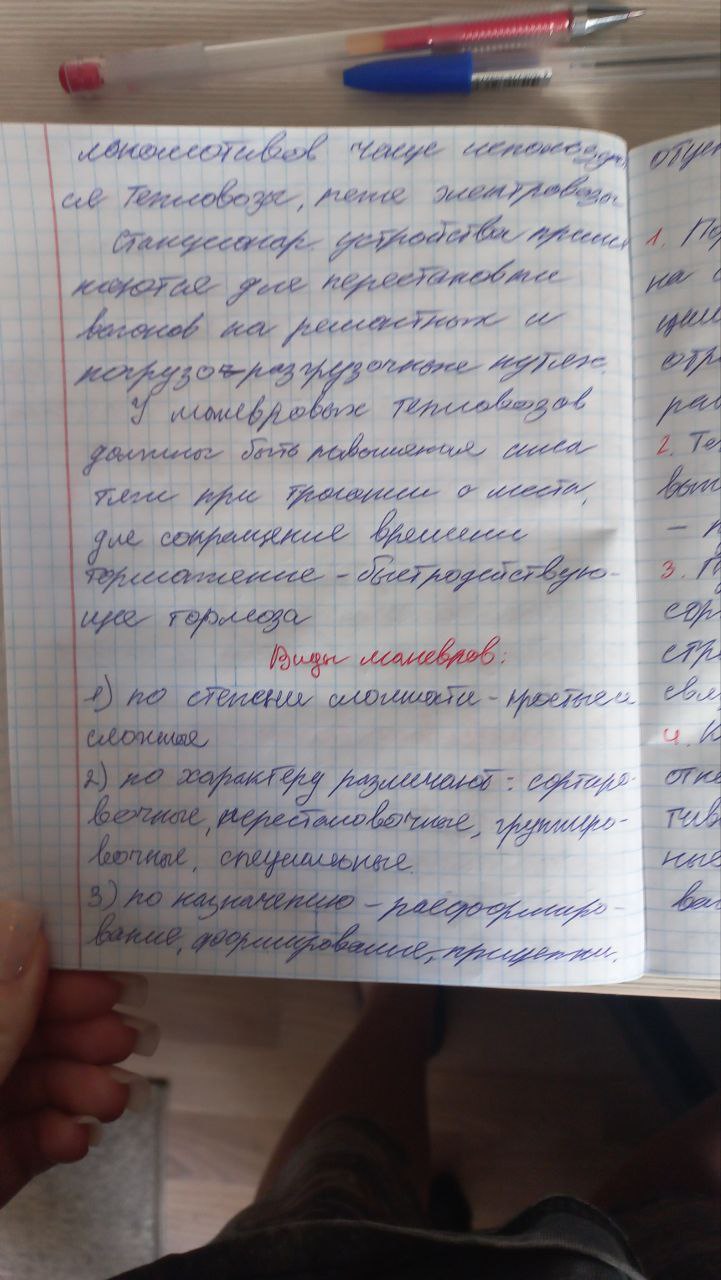 локомотивов чаще использую
ся тепловозы, реже электровозы
Стационар. устройства приме
няются для перестановки
вагонов на ремонтных и
погрузо-разгрузочных путях.
У маневровых тепловозов
должны быть повышенная сила
тяги при трогании с места,
для сокращения времени
торможение - быстродействую-
щие тормоза
Виды маневров:
1) по степени сложности - простые и
сложные
2) по характеру различают: сортиро-
вочные, перестановочные, группиро-
вочные, специальные.
3) по назначению - расформиро-
вание, формирование, прицепки.
1. По
на
2. Те
3. П
сор
стр
4.